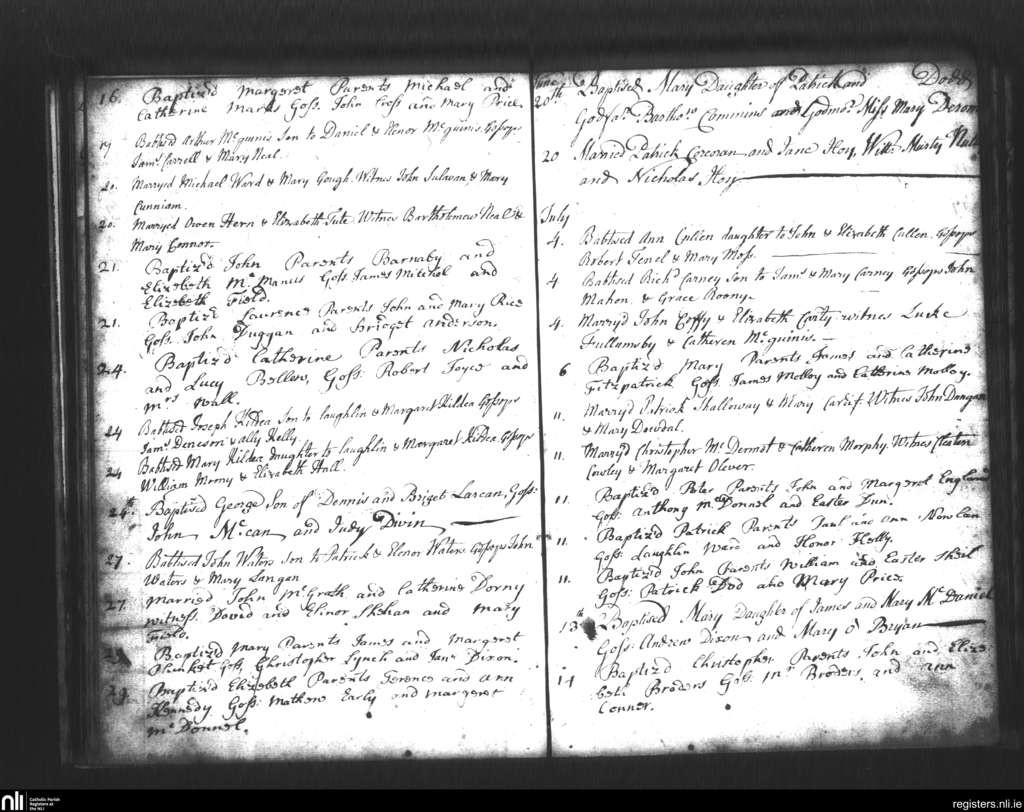 16. Baptiz'd Margeret Parents Michael and
Catherine Marks Goss. John Goss and Mary Price
19 Babtis'd Arthur McGuinis Son to Daniel & Elenor McGuinis. Gossops
Jams. Carrell & Mary Neal.
20. Marryed Michael Ward & Mary Gough. Witnes John Sulavan, & Mary
Cunniam.
20. Marryed Owen Hern & Elizabeth Tute Witnes Bartholomew Neal &
Mary Connor.
21. Baptiz'd John Parents Barnaby and
Elizebeth McManus Goss James Mitchel and
Elizebeth Field.
21. Baptiz'd Laurence Parents John and Mary Rice
Goss. John Duggan and Bridget Anderson.
24. Baptiz'd Catherine Parents Nicholas
and Lucy Bellew, Goss. Robert Joyce and
Mrs Wall.
24 Babtis'd Joseph Kildea Son to laughlin & Margaret Kildea Gossops
Jams. Deneson & ally Kelly
24 Babtis'd Mary Kildea daughter to laughlin & Margaret Kildea. Gossops
William & Elizabeth Hall.
26th Baptised George Son of Dennis and Briget Larcan, Goss:
John McCan and Judy Divin
27. Babtised John Waters Son to Patrick & Elenor Waters Gossops John
Waters & Mary Langan
27. Married John McGrath and Catherine Dorny
witness. David and Elinor Skehan and Mary
Field.
Baptiz'd Mary Parents James and Margeret
Plunket Goss, Christopher Lynch and Jane Dixon.
29. Baptiz'd Elizebeth Parents Terence and Ann
Kennedy Goss: Mathew Early and Margeret
McDonnel.
June
20th Baptised Mary Daughter of Patrick and Dodd
Godfar. Bartholw Commins and Godmor. Miss Mary
20 Married Patrick Corcoran and Jane Hoy, Witt:
and Nicholas Hoy
July
4. Babtised Ann Cullen daughter to John & Elizabeth Cullen. Gossops
Robert Tenel & Mary Moss.
4 Babtised Richd. Carney Son to Jams. & Mary Carney Gossops John
Mahon, & Grace Roony.
4. Marry'd John Coffy & Elizabeth Carty witnes Lucke
Fullamsby & Catheren McGuinis.
6 Baptiz'd Mary Parents James and Catherine
Fitzpatrick Goss. James Molloy and Catherine Molloy.
11. Marry'd Patrick Shalloway & Mary Cardif. Witnes John Dungan
& Mary Dowdal.
11. Marry'd Christopher McDermot & Catheren Morphy. Witnes
Cowley & Margaret Olever.
11. Baptiz'd Peter Parents John and Margeret England
Goss: Anthony McDonnel and Easter Dun.
11. Baptiz'd Patrick Parents Paul and Ann Nowlan
Goss. Laughlin Ward and Honor Kelly.
11. Baptiz'd John Parents William and Easter Sheil
Goss: Patrick Dod and Mary Price.
13th Baptised Mary Daughter of James and Mary McDaniel
Goss: Andrew Dixon and Mary O Bryan
14 Baptiz'd Christopher Parents John and Elize
beth Broders Goss. Mr Broders, and Ann
Conner.
nli
Catholic Parish
Registers at
the NLI
registers.nli.ie